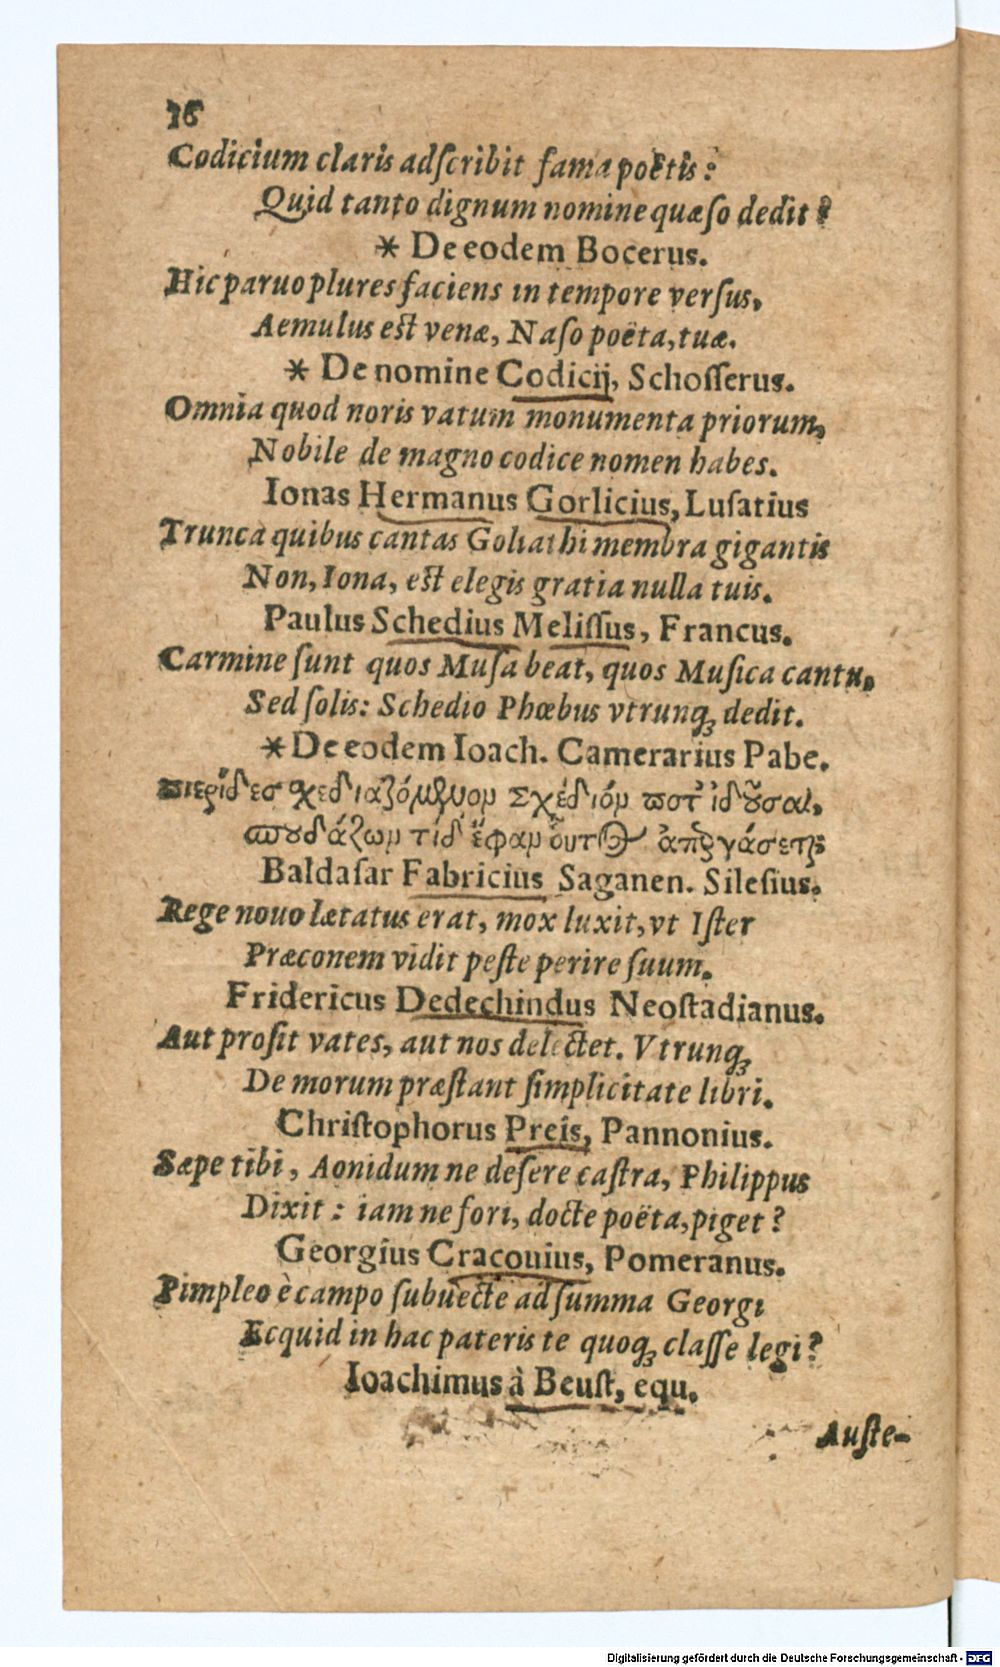 16
Codicium claris adſcribit fama poëtis:
Quid tanto dignum nomine quæſo dedit?
* De eodem Bocerus.
Hic paruo plures faciens in tempore verſus,
Aemulus eſt venæ, Naſo poëta, tuæ.
* De nomine Codicij, Schoſſerus.
Omnia quod noris vatum monumenta priorum,
Nobile de magno codice nomen habes.
Ionas Hermanus Gorlicius, Luſatius
Trunca quibus cantas Goliathi membra gigantis
Non, Iona, eſt elegis gratia nulla tuis.
Paulus Schedius Meliſſus, Francus.
Carmine ſunt quos Muſa beat, quos Muſica cantu,
Sed ſolis: Schedio Phœbus vtrunq; dedit.
* De eodem Ioach. Camerarius Pabe.
πιερίδες σχεδιαζόμενον Σχέδιόν ποτ' ἰδοῦσαι,
σπουδάζων τίδ' ἔφαν οὗτος
Baldaſar Fabricius Saganen. Sileſius.
Rege nouo lætatus erat, mox luxit, vt Iſter
Præconem vidit peſte perire ſuum.
Fridericus Dedechindus Neoſtadianus.
Aut proſit vates, aut nos delectet. Vtrunq;
De morum præſtant ſimplicitate libri.
Chriſtophorus Preis, Pannonius.
Sæpe tibi, Aonidum ne deſere caſtra, Philippus
Dixit: iam ne fori, docte poëta, piget?
Georgius Cracouius, Pomeranus.
Pimpleo è campo ſubuecte ad ſumma Georgi
Ecquid in hac pateris te quoq; claſſe legi?
Ioachimus à Beuſt, equ.
Auſte-
Digitalisierung gefördert durch die Deutsche Forschungsgemeinschaft - DFG